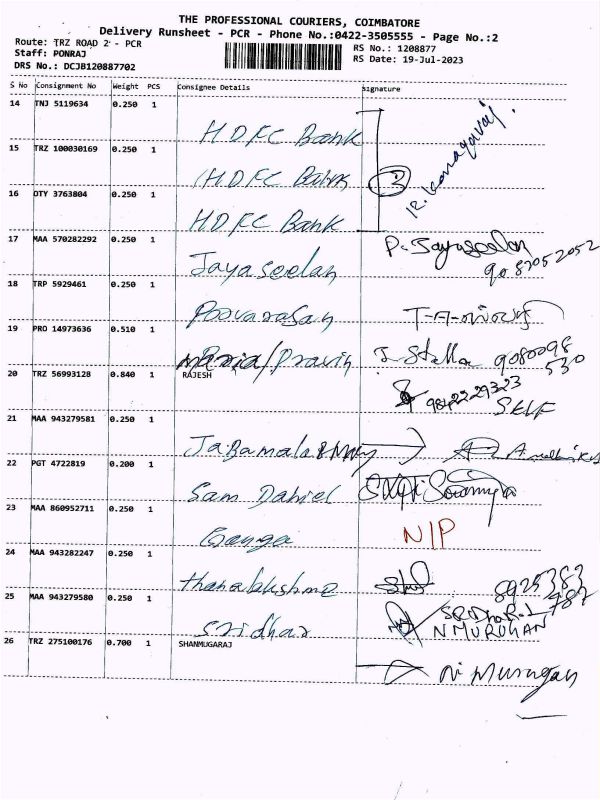 THE PROFESSIONAL COURIERS, COIMBATORE
Delivery Runsheet - PCR - Phone No.:0422-3505555 - Page No.:2
Route: TRZ ROAD 2 - PCR
Staff: PONRAJ
DRS No.: DCJB120887702
RS No.: 1208877
RS Date: 19-Jul-2023
S No Consignment No Weight PCS Consignee Details Signature
14 TNJ 5119634 0.250 1 HDFC Bank
15 TRZ 100030169 0.250 1 HDFC Bank 3 R. Kanagavaj.
16 OTY 3763804 0.250 1 HDFC Bank
17 MAA 570282292 0.250 1 Jayaseelan P. Jayaseelan
18 TRP 5929461 0.250 1 Poovarasan T-A-
19 PRO 14973636 0.510 1 Maria/Pravin I. Stella 9080098
530
20 TRZ 56993128 0.840 1 RAJESH 9842229323
SELF
21 MAA 943279581 0.250 1
22 PGT 4722819 0.200 1 Sam Daniel Sowmya
23 MAA 860952711 0.250 1 Ganga N/P
24 MAA 943282247 0.250 1 8925383
787
25 MAA 943279580 0.250 1 Sridhar
N MURUGAN
26 TRZ 275100176 0.700 1 SHANMUGARAJ N Murugan